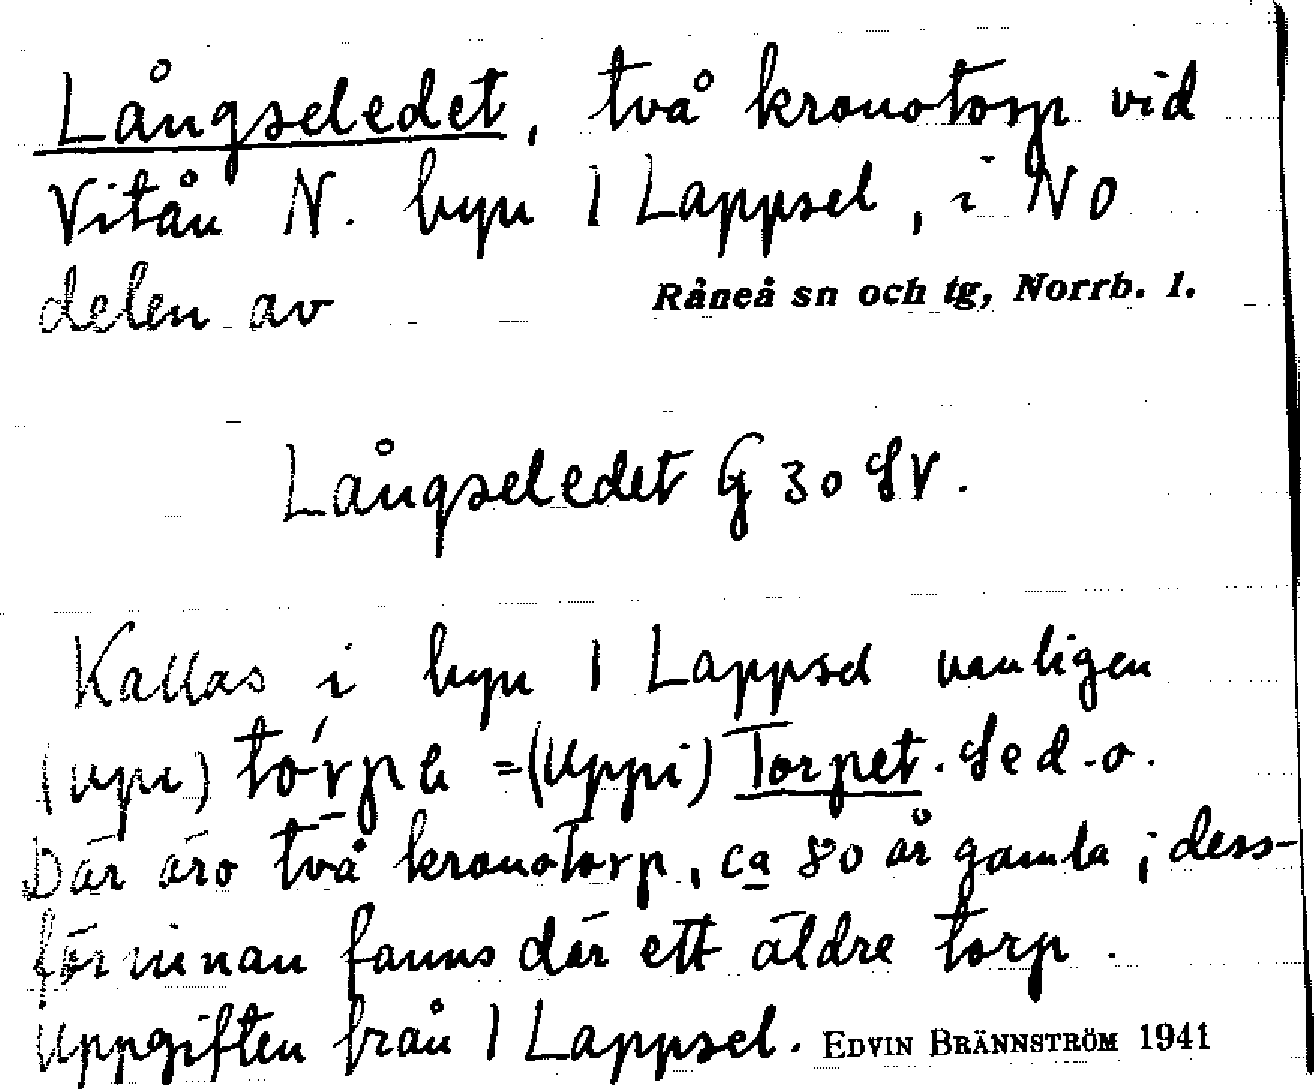 Långseledet, två kronotorp vid
Vitån N. byn 1 Lappsel, i NO
delen av Råneå sn och tg, Norrb. l.
Långseledet G 30 SV.
Kallas i byn 1 Lappsel vanligen
(upi) tórpe =(Uppi) Torpet. Se d.o.
Där äro två kronotorp, ca 80 år gamla; dess-
förinnan fanns där ett äldre torp.
Uppgiften från 1 Lappsel. EDVIN BRÄNNSTRÖM 1941